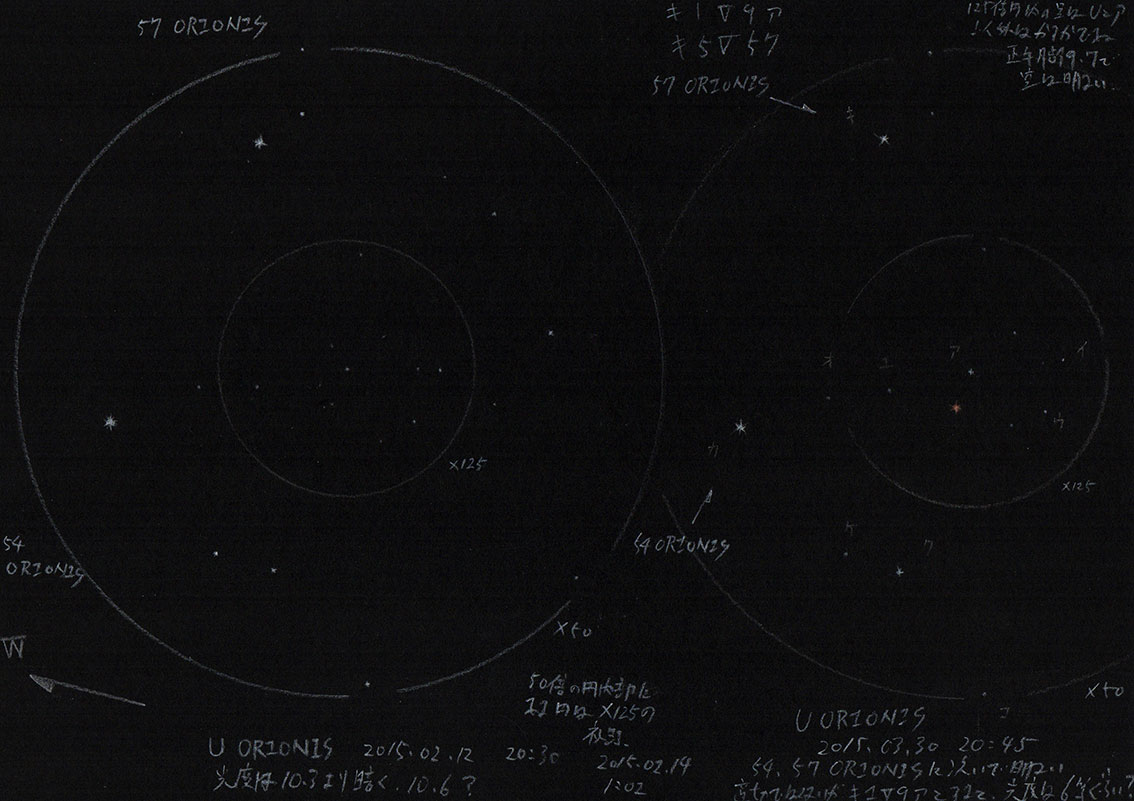 57 ORIONIS
×125
54
ORIONIS
W
×50
50倍の円内部に
ある円は ×125の
視野。
U ORIONIS 2015.02.12 20:30
光度は10.3より暗く. 10.6?
2015.02.14
1:02
キ1▽9ア
キ5▽57
57 ORIONIS
125倍円内の星はUとア
正午月齢9.7で
空は明るい.
キ
オ
エ
ア
イ
ウ
カ
×125
54 ORIONIS
ケ
ク
×50
コ
U ORIONIS
2015.03.30 20:45
54, 57 ORIONISに次いで明るい
キ1▽9アとすると、光度は6等ぐらい?